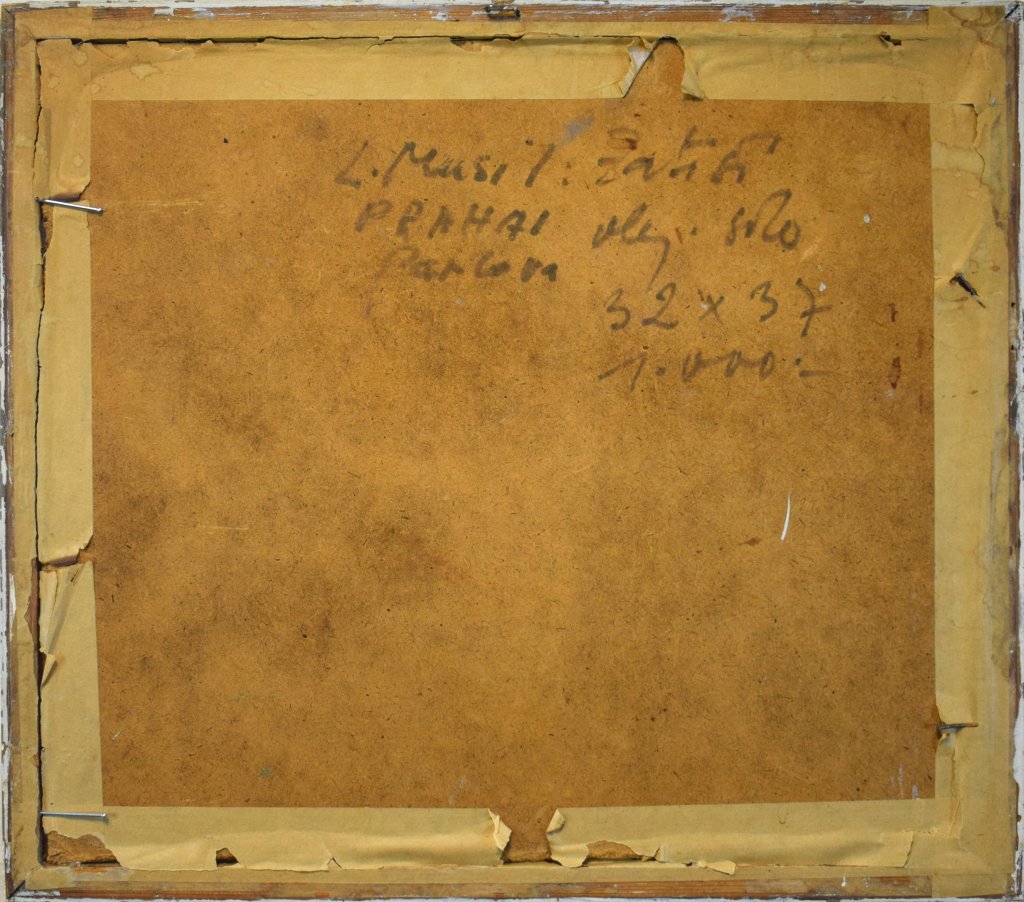 L. Musil: Zátiší
PRAHA 1 olej. sklo
32 x 37
1.000.-